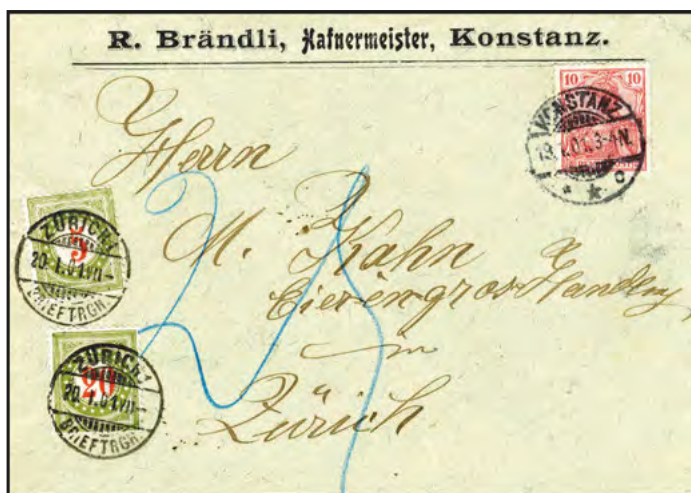 R. Brändli, Hafnermeister, Konstanz.
10 10
KONSTANZ
19.1.01.3-4N.
* * c
Herrn
M. Kahn
Eierengros Handlung
in
Zürich
25
5
ZÜRICH 1
20.1.01.VII-
BRIEFTRGR.
20
ZÜRICH 1
20.1.01.VII-
BRIEFTRGR.